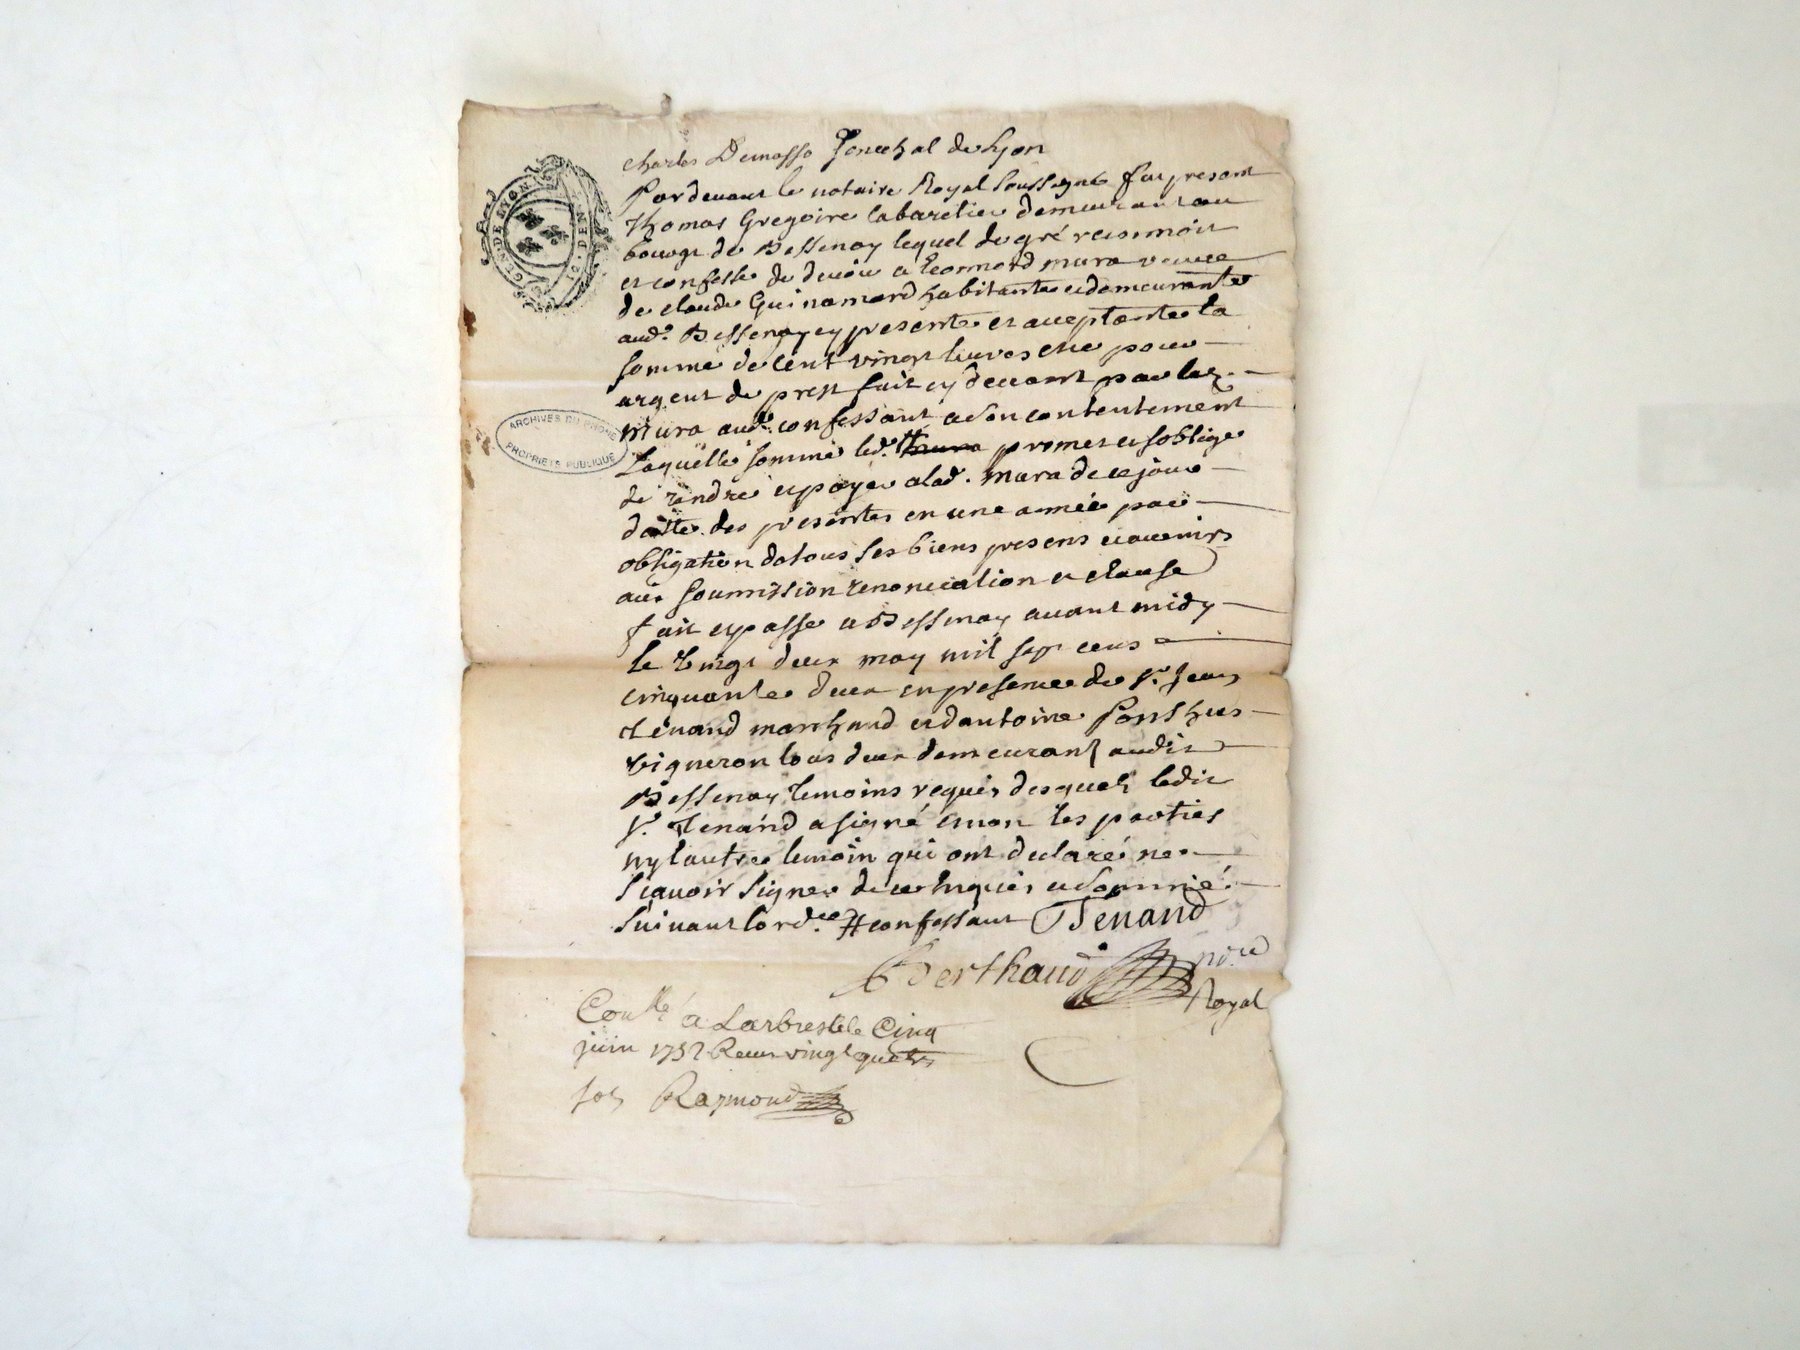 GEN DE LYON
DI DEN
ARCHIVES DU RHONE
PROPRIETE PUBLIQUE
Charles Demasso Senechal de Lyon
Pardevant le notaire Royal soussigné fut present
Thomas Gregoire Cabaretier demeurant au
bourg de Bessenay lequel de gré reconnoit
et confesse de devoir a Leonnord mura veuve
de Claude Guinamard habitante et demeurante
aud.t Bessenay cy presente et acceptante la
somme de Cent vingt livres et ce pour
argent de prest fait cy devant par lad.
Mura aud. confessant a son contentement
Laquelle somme led. # mura promet et soblige
de rendre et payer a lad. mura de ce jour
datte des presentes en une année par
obligation de tous ses biens presens et avenirs
aux soumission renonciation et clause
fait et passé a Bessenay avant midy
le vingt deux may mil sept cens
cinquante deux en presence de Sr. Jean
Tenand marchand et dantoine Ponthus
vigneron tous deux demeurant audit
Bessenay temoins requis desquels ledit
Sr. Tenand a signé et non les parties
ny lautre temoin qui ont declaré ne
scavoir signer de ce enquis et sommé
suivant lord.ce # confessant Tenand
Berthaud no.re
Royal
Con.llé a Larbresle le Cinq
juin 1752 Receu vingt quatre
sols Raymond